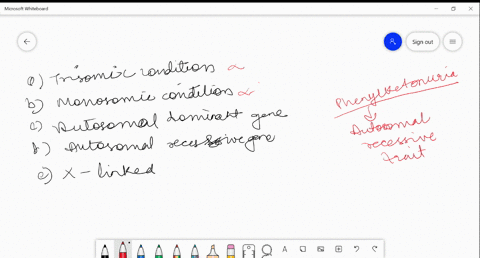 Microsoft Whiteboard
Sign out
a) Trisomic condition
b) Monosomic condition
c) Autosomal dominant gene
d) Autosomal recessive gene
e) X-linked
Phenylketonuria
Autosomal
recessive
trait